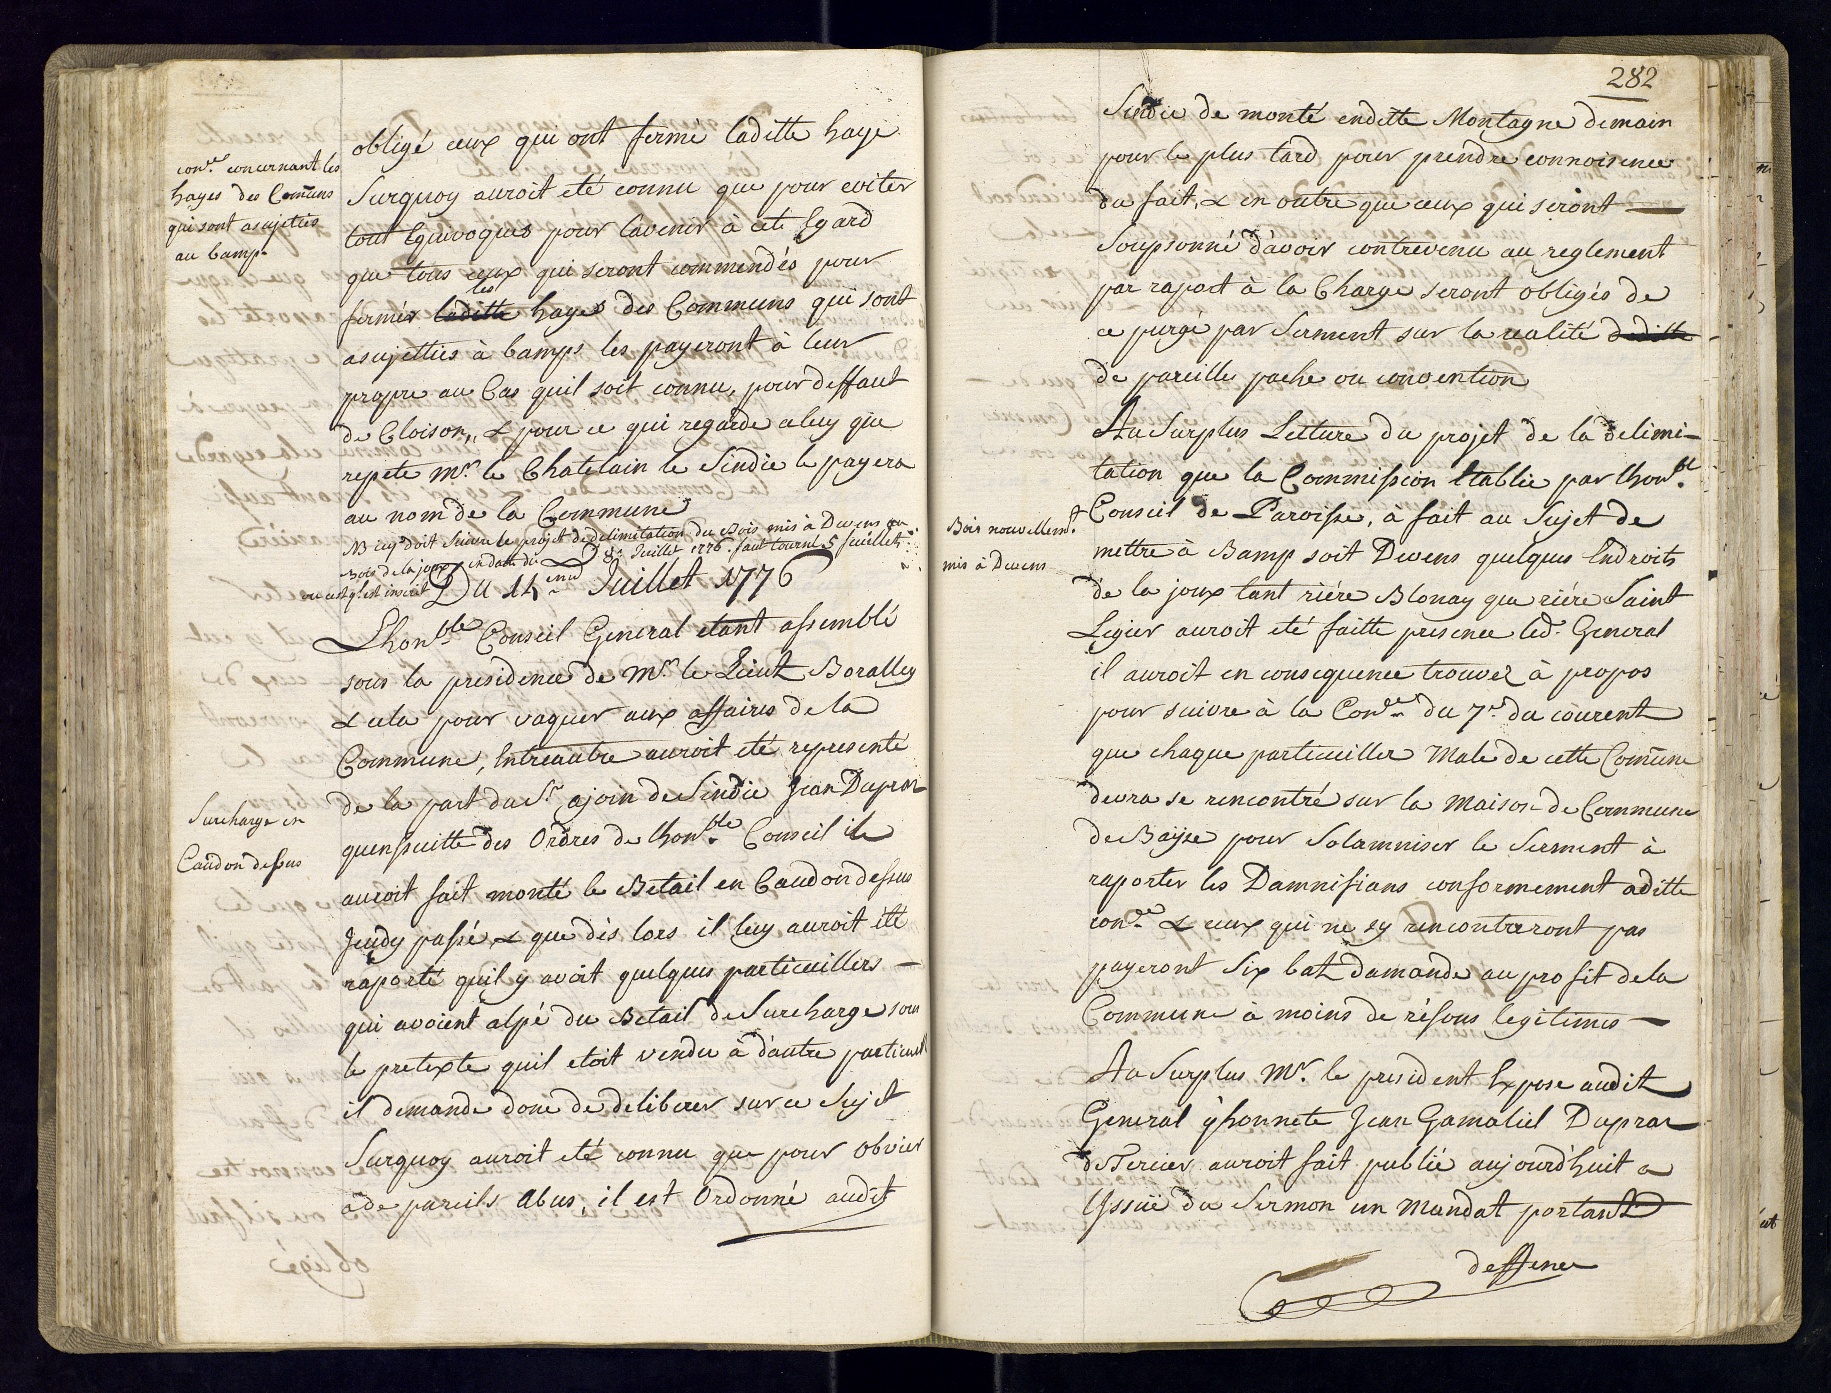 obligé ceux qui ont fermé laditte haye
con.ce concernant les
hayes des Comuns
qui sont asujeties
au bamp.
Surquoy auroit eté connu que pour eviter
tout Equivoques pour lavenir à cet Egard
que tous ceux qui seront commendés pour
les
fermér laditte hayes des Communs qui sont
asujetties à bamps les payeront à leur
propre au Cas quil soit connu, pour deffaut
de Cloison, & pour ce qui regarde aluy que
repete Mr. le Chatelain le Sindic le payera
au nom de la Commune
NB icy doit suivre le projet de delimitation du Bois mis à Devens en
Bois de la joux en date du 8e Juillet 1776. faut tourné 5 fuillets
ou cest qest inscrit
Du 14eme Juillet 1776
Lhonble Conseil General etant assemblé
sous la presidence de Mr. le Lieut Boralley
& cela pour vaquer aux affaires de la
Commune, Entreautre auroit eté representé
Surcharge en
Caudon dessus
de la part du Sr. ajoin de Sindic Jean Dupraz
quensuitte des Ordres de lhonble Conseil il
auroit fait monté le Betail en Caudon dessus
Jeudy passé & que dès lors il luy auroit eté
raporté quil y avoit quelques particuillers
qui avoient alpé du Betail de Surcharge sous
le pretexte quil etoit vendu à d'autre particuill
il demande donc de deliberer sur ce Sujet
Surquoy auroit eté connu que pour obvier
a de pareils abus, il est Ordonné audit
282
Sindic de monté enditte Montagne demain
pour le plus tard pour prendre connoisence
du fait, & en outre que ceux qui seront
Soupsonné d'avoir contrevenu au reglement
par raport à la Charge seront obligés de
ce purgé par Serment sur la realité deditte
de pareille pache ou convention
Au Surplus Letture du projet de la delimi-
tation que la Commission Etablie par lhonble
Bois nouvellemt
mis à Devens
Conseil de Paroisse, à fait au Sujet de
mettre à Bamp soit Devens quelques Endroits
de la joux tant riére Blonay que riére Saint
Legier auroit eté faitte presence led. General
il auroit en consequence trouvez à propos
pour suivre à la Con.ce du 7e du courent
que chaque particuiller Male de cette Comune
devra se rencontré sur la Maison de Commune
de Bayse pour Solamniser le Serment à
raporter les Damnifians conformement aditte
con.ce & ceux qui ne sy rencontreront pas
payeront Six batz damande au profit de la
Commune à moins de résons legitimes
Au Surplus Mr. le president Expose audit
General q'honnete Jean Gamaliel Dupraz
de Tercier auroit fait publié aujourd'huit a
lyssüe du Sermon un Mandat portant
deffence